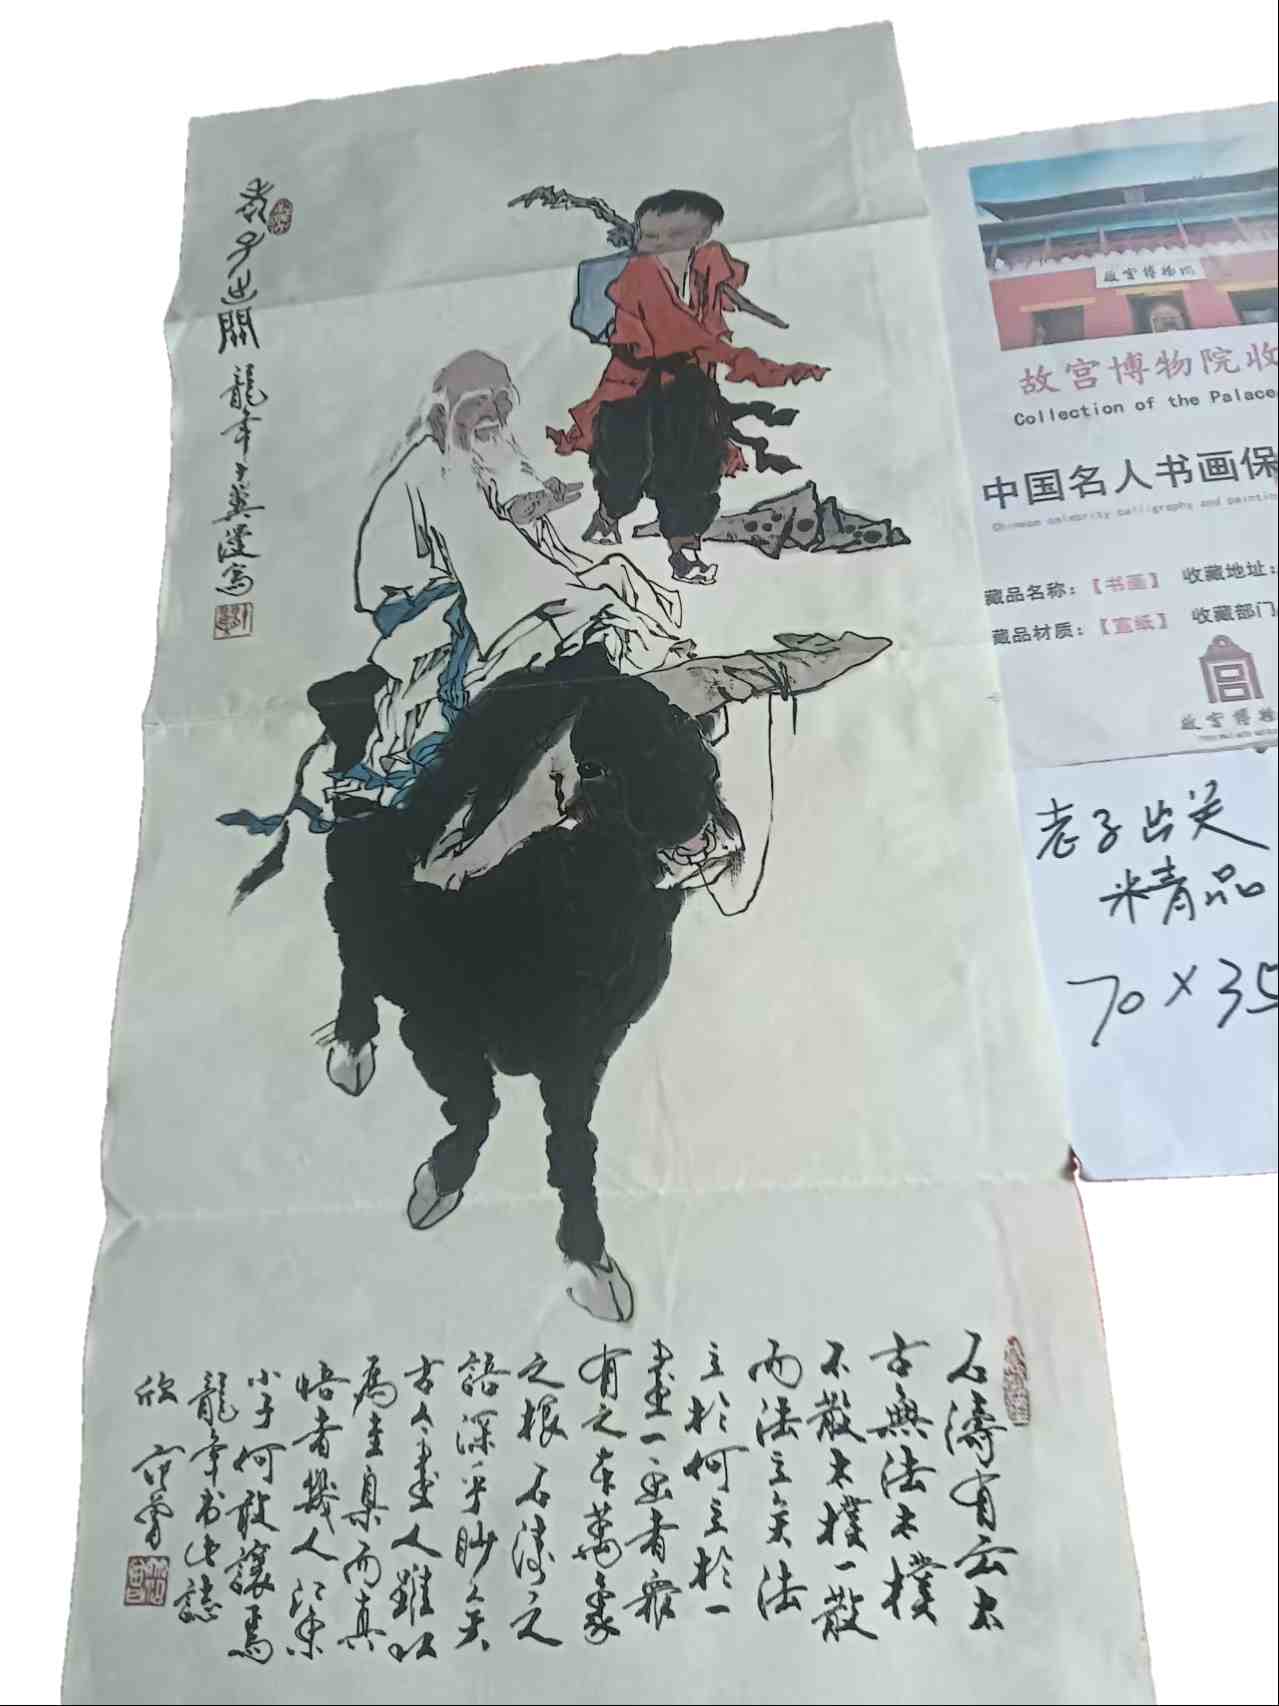 老子出關
龍年
石濤有云太
古無法太樸
不散太樸一散
而法立矣法
立於何立於一
畫一畫者衆
有之本萬象
之根石濤之
語深乎眇矣
古今畫人雖以
為圭臬而真
悟者幾人江東
小子何敢讓焉
龍年书此誌
欣 范曾
故宫博物院
故宫博物院收
Collection of the Palace
中国名人书画保
Chinese celebrity calligraphy and painting
藏品名称：【书画】 收藏地址：
藏品材质：【宣纸】 收藏部门
故宫博物
老子出关
精品
70×35